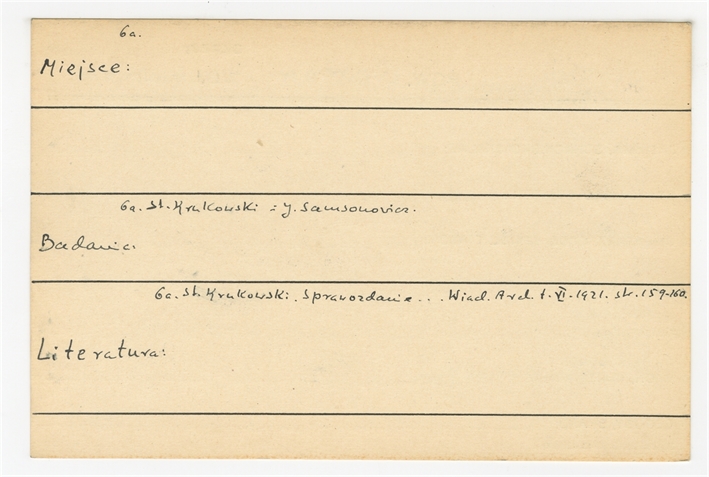 6a.
Miejsce:
6a. St. Krukowski i J. Samsonowicz.
Badania:
6a. St. Krukowski. Sprawozdanie... Wiad. Arch. t. VI. 1921. str. 159-160.
Literatura: